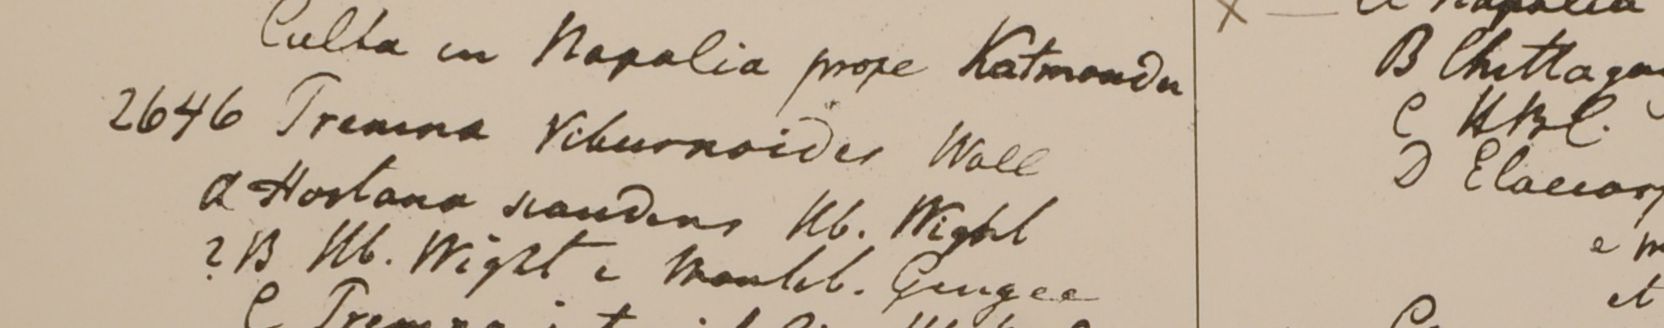 Culta in Napalia prope Katmandu
2646 Premna Viburnoides Wall
a Hostana scandens Hb. Wight
? B Hb. Wight e Montib. Gingee
C Premna
Napalia
B Chittagon
C HBC.
D Elaeocarp
e m
et